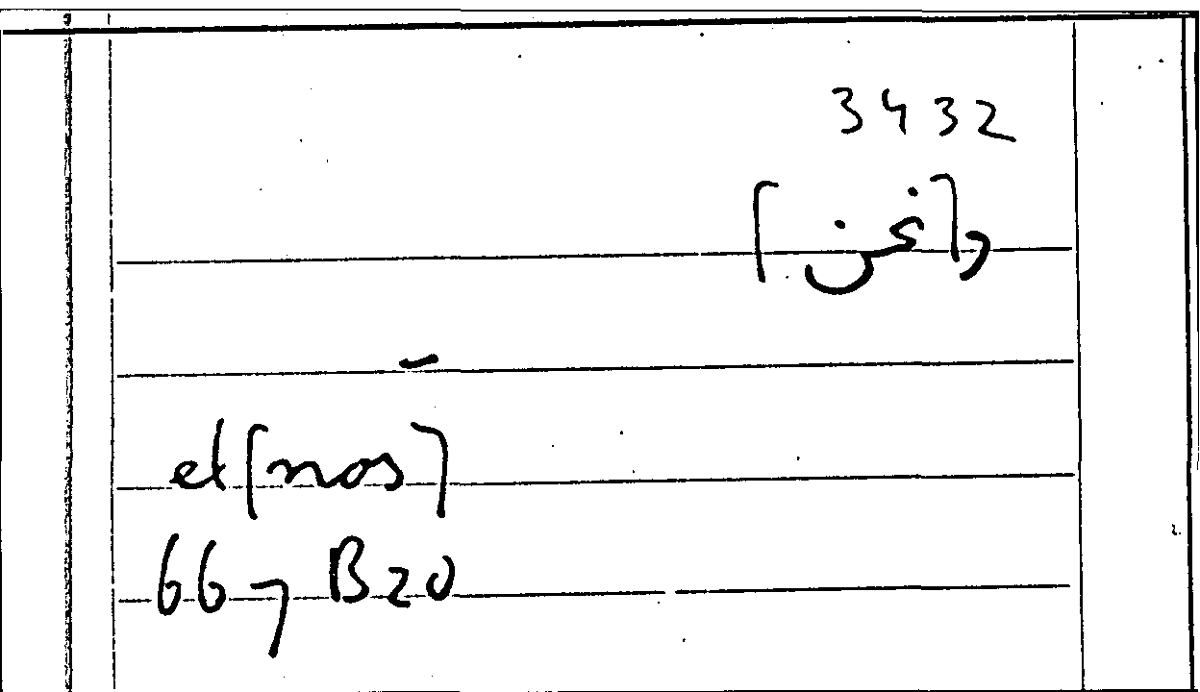 3432
و[نحن]
el [nos]
667 B20